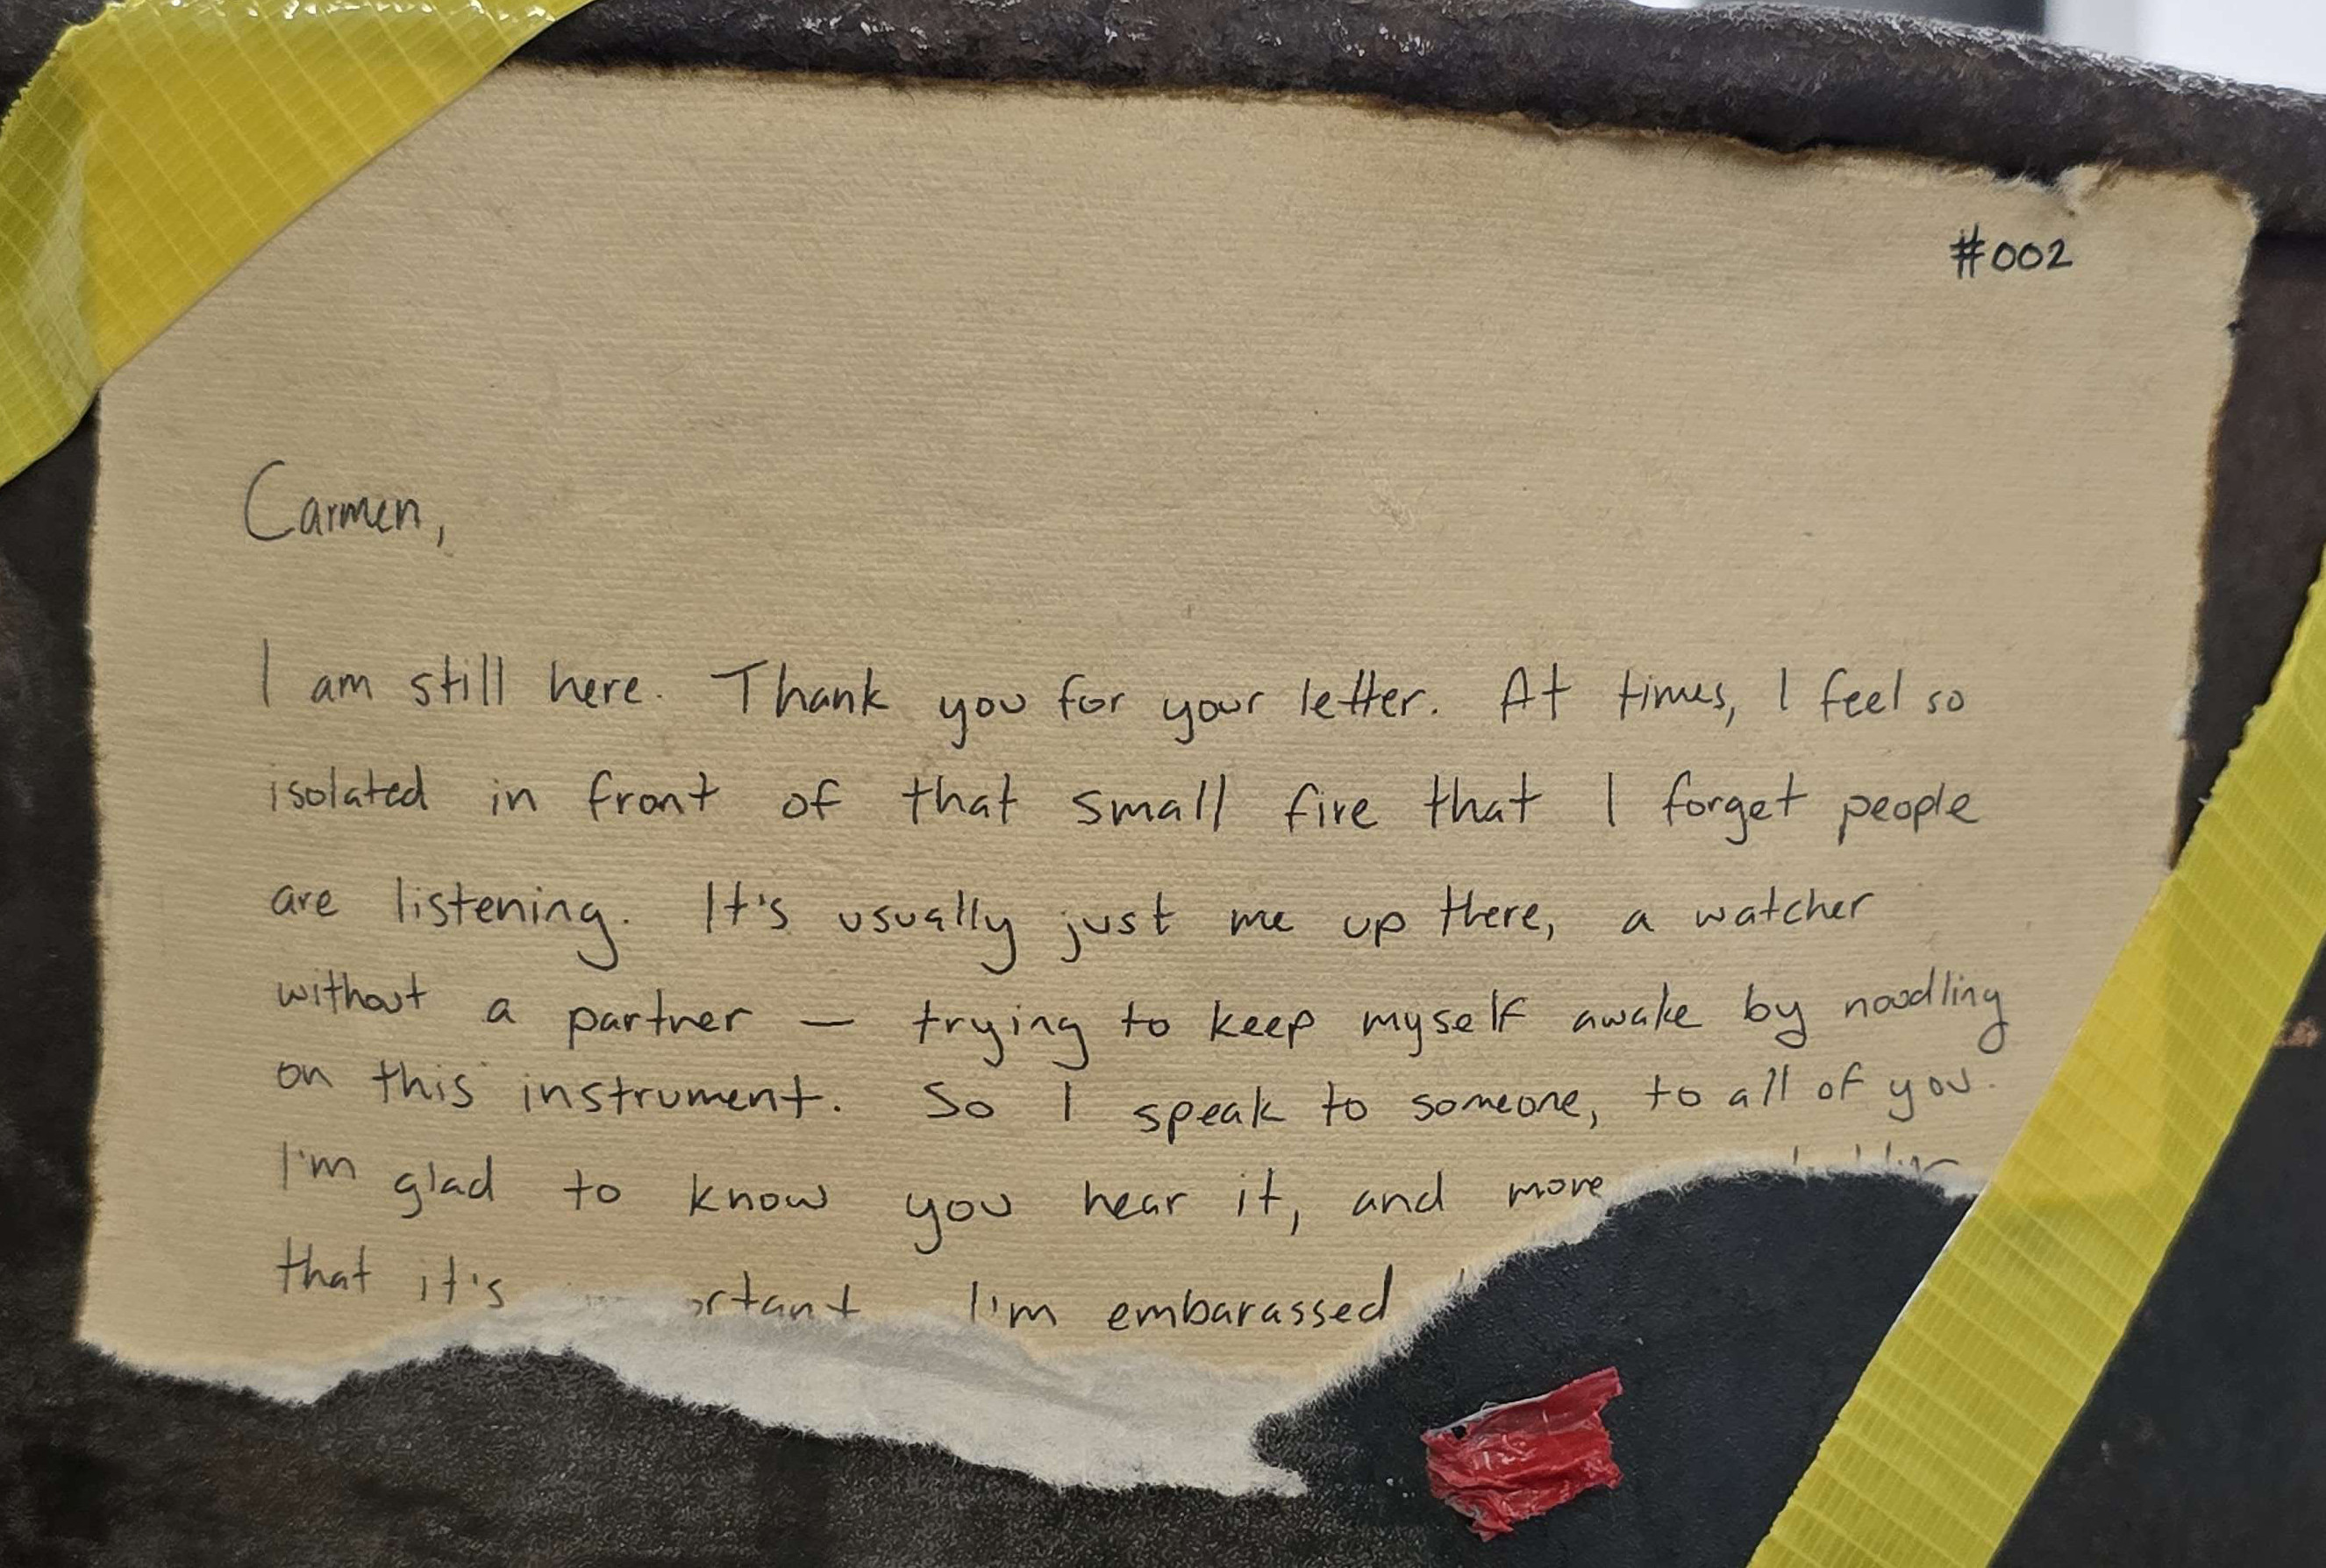 #002
Carmen,
I am still here. Thank you for your letter. At times, I feel so
isolated in front of that small fire that I forget people
are listening. It's usually just me up there, a watcher
without a partner — trying to keep myself awake by noodling
on this instrument. So I speak to someone, to all of you.
I'm glad to know you hear it, and more
that it's I'm embarassed